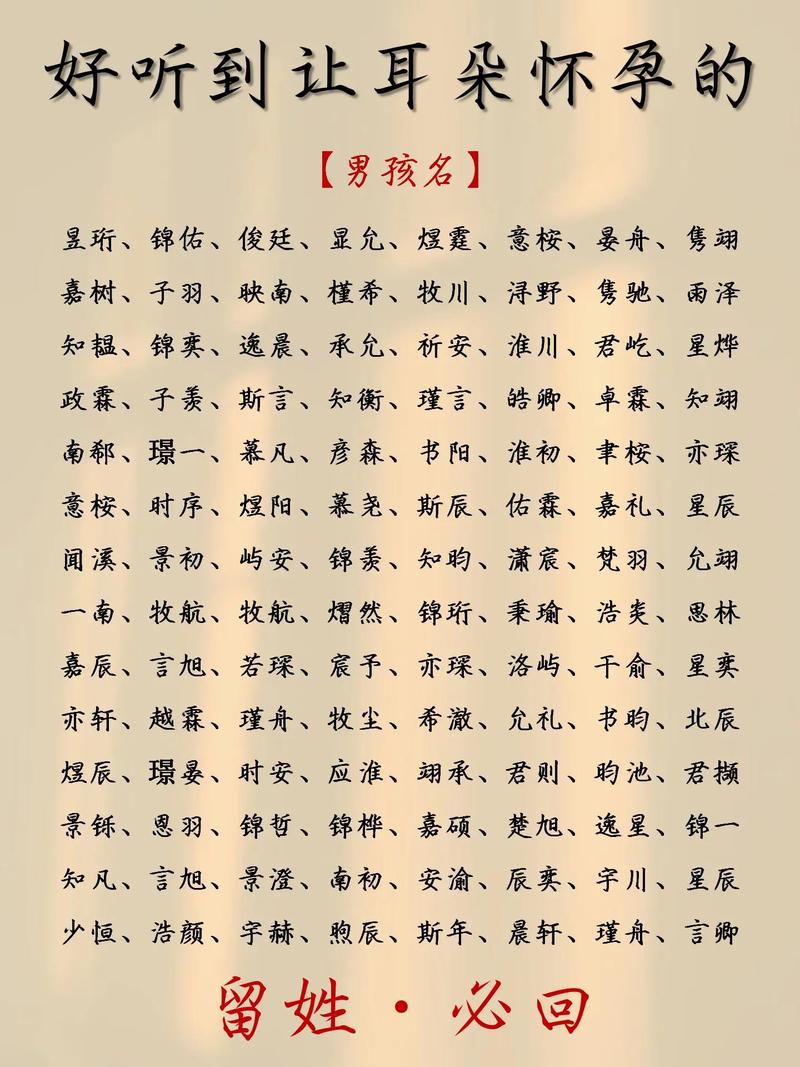 好听到让耳朵怀孕的
【男孩名】
昱珩、锦佑、俊廷、显允、煜霆、意桉、晏舟、隽翊
嘉树、子羽、映南、槿希、牧川、浔野、隽驰、雨泽
知韫、锦奕、逸晨、承允、祈安、淮川、君屹、星烨
政霖、子羡、斯言、知衡、瑾言、皓卿、卓霖、知翊
南郗、璟一、慕凡、彦森、书阳、淮初、聿桉、亦琛
意桉、时序、煜阳、慕尧、斯辰、佑霖、嘉礼、星辰
闻溪、景初、屿安、锦羡、知昀、潇宸、梵羽、允翊
一南、牧航、牧航、熠然、锦珩、秉瑜、浩炎、思林
嘉辰、言旭、若琛、宸予、亦琛、洛屿、干俞、星奕
亦轩、越霖、瑾舟、牧尘、希澈、允礼、书昀、北辰
煜辰、璟晏、时安、应淮、翊承、君则、昀池、君撷
景铄、恩羽、锦哲、锦桦、嘉硕、楚旭、逸星、锦一
知凡、言旭、景澄、南初、安渝、辰奕、宇川、星辰
少恒、浩颜、宇赫、煦辰、斯年、晨轩、瑾舟、言卿
留姓·必回